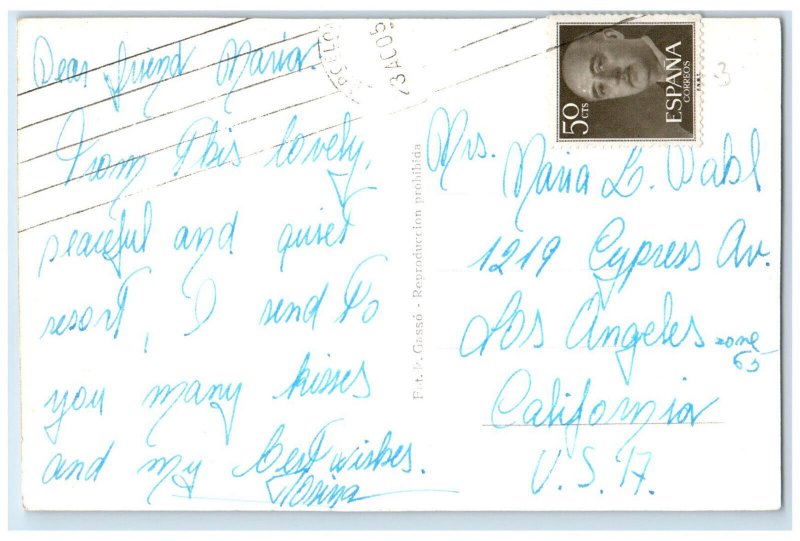 Dear friend Maria.
From this lovely,
peaceful and quiet
resort, I send to
you many kisses
and my best wishes.
Fot. F. Gassó - Reproduccion prohibida
50 CTS
ESPAÑA
CORREOS
3
Mrs.
Maria L. Dahl
1219 Cypress Av.
Los Angeles zone
65
California
U.S.A.